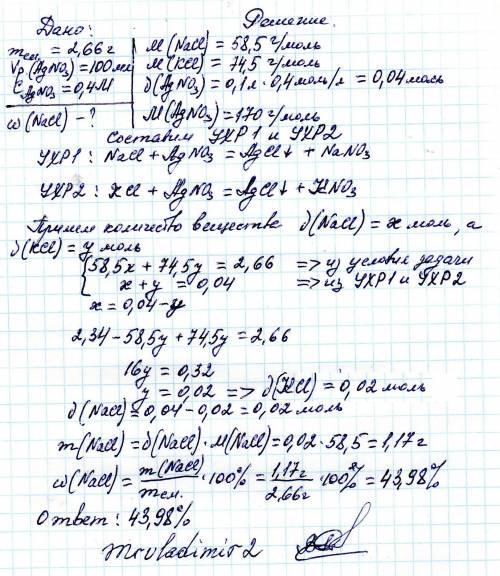 Дано:
Решение.
mсм. = 2,66 г
Vр.(AgNO₃) = 100 мл
C AgNO₃ = 0,4 М
ω(NaCl) – ?
M(NaCl) = 58,5 г/моль
M(KCl) = 74,5 г/моль
ϑ(AgNO₃) = 0,1 л · 0,4 моль/л = 0,04 моль
M(AgNO₃) = 170 г/моль
Составим УХР1 и УХР2
УХР1 : NaCl + AgNO₃ = AgCl↓ + NaNO₃
УХР2 : KCl + AgNO₃ = AgCl↓ + KNO₃
Примем количество вещества ϑ(NaCl) = x моль, а
ϑ(KCl) = y моль
{58,5x + 74,5y = 2,66 => из условия задачи
x + y = 0,04 => из УХР1 и УХР2
x = 0,04 - y
2,34 - 58,5y + 74,5y = 2,66
16y = 0,32
y = 0,02 => ϑ(KCl) = 0,02 моль
ϑ(NaCl) = 0,04 - 0,02 = 0,02 моль
m(NaCl) = ϑ(NaCl) · M(NaCl) = 0,02 · 58,5 = 1,17 г
ω(NaCl) = m(NaCl)/mсм. · 100% = 1,17 г/2,66 г · 100% = 43,98%
Ответ : 43,98%
Mrvladimir2